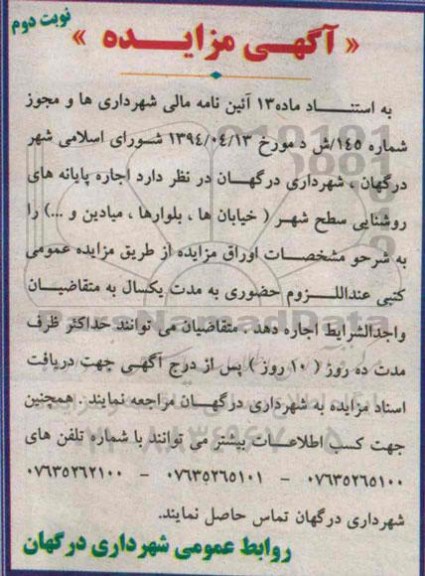 نوبت دوم
« آگهی مزایده »
به استناد ماده۱۳ آئین نامه مالی شهرداری ها و مجوز
شماره ۱۴۵/ش د مورخ ۱۳۹۴/۰۴/۱۳ شورای اسلامی شهر
درگهان ، شهرداری درگهان در نظر دارد اجاره پایانه های
روشنایی سطح شهر ( خیابان ها ، بلوارها ، میادین و ...) را
به شرحو مشخصات اوراق مزایده از طریق مزایده عمومی
کتبی عنداللزوم حضوری به مدت یکسال به متقاضیان
واجدالشرایط اجاره دهد . متقاضیان می توانند حداکثر ظرف
مدت ده روز ( ۱۰ روز ) پس از درج آگهی جهت دریافت
اسناد مزایده به شهرداری درگهان مراجعه نمایند . همچنین
جهت کسب اطلاعات بیشتر می توانند با شماره تلفن های
۰۷۶۳۵۲۶۵۱۰۰ – ۰۷۶۳۵۲۶۵۱۰۱ – ۰۷۶۳۵۲۶۲۱۰۰
شهرداری درگهان تماس حاصل نمایند.
روابط عمومی شهرداری درگهان
ParsNamadData
۰۲۱-۸۸۳۴۹۶۷۰-۵